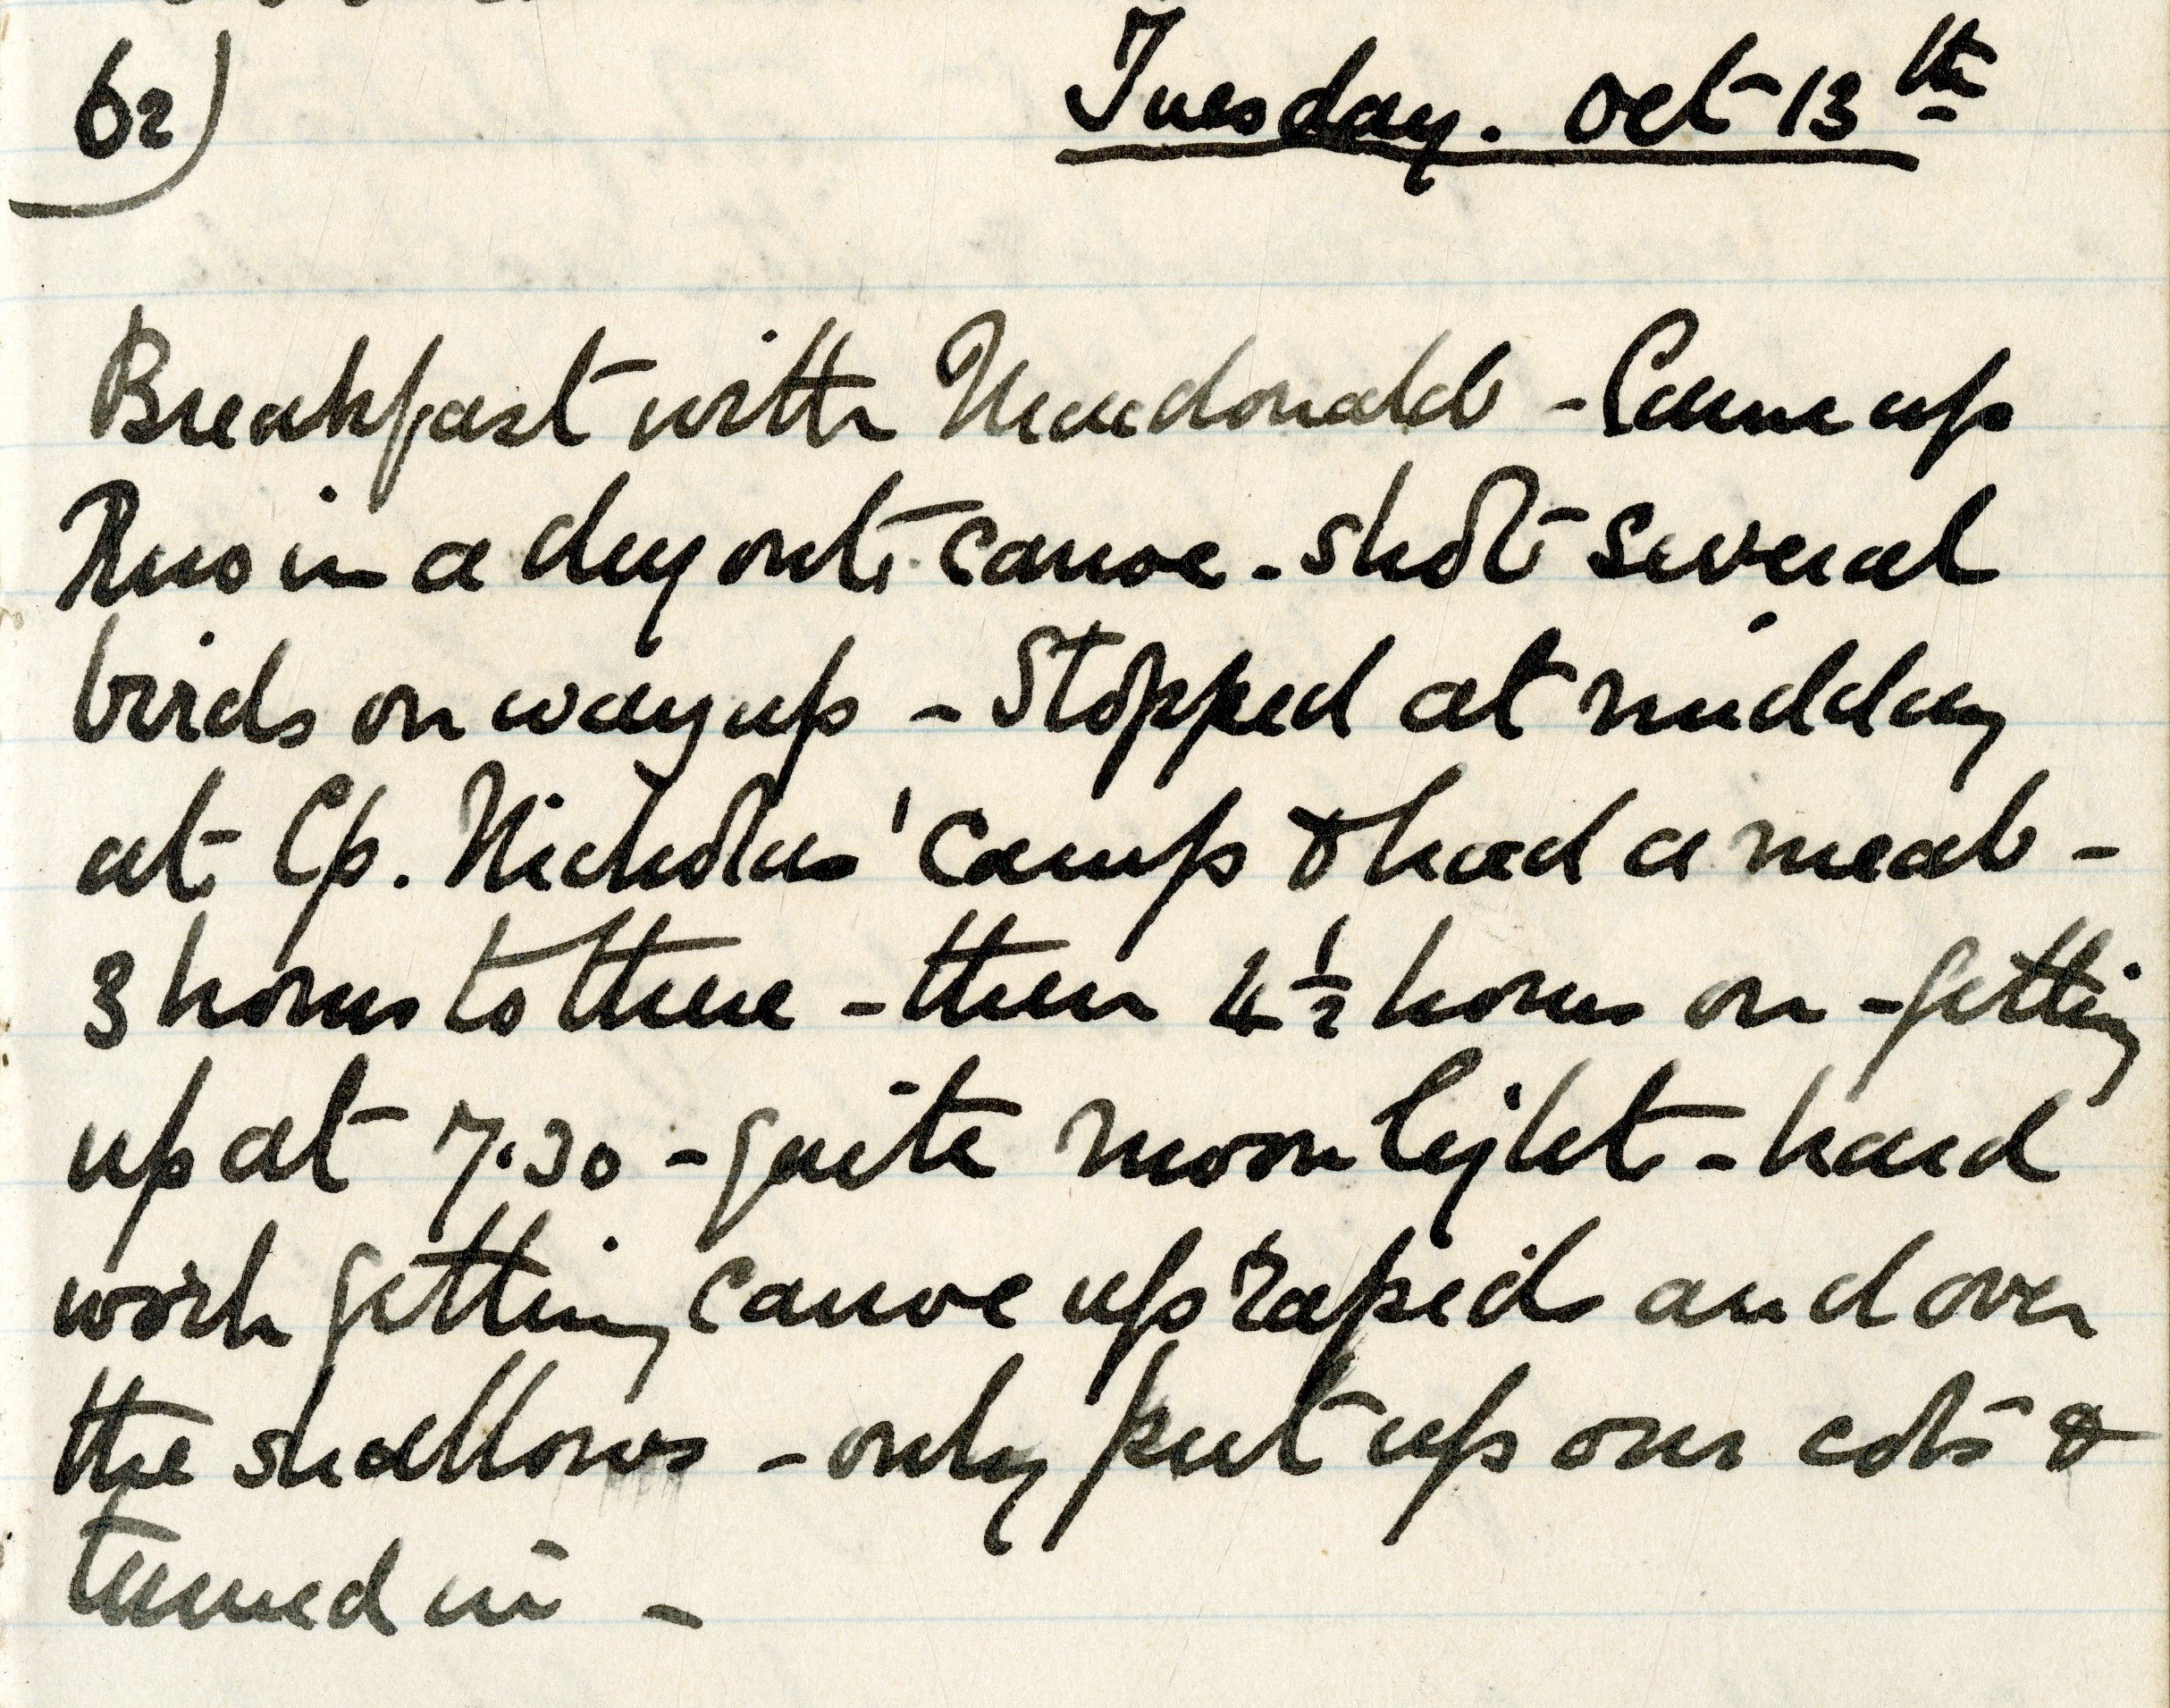 62) Tuesday. Oct 13th
Breakfast with Macdonald - Came up
Ruo in a dug out canoe - shot several
birds on way up - Stopped at midday
at Cp. Nicholas' Camp & had a meal -
3 hours to there - then 4 ½ hours on - getting
up at 7.30 - quite moonlight - hard
work getting canoe up rapids and over
the shallows - only put up our cots &
turned in -